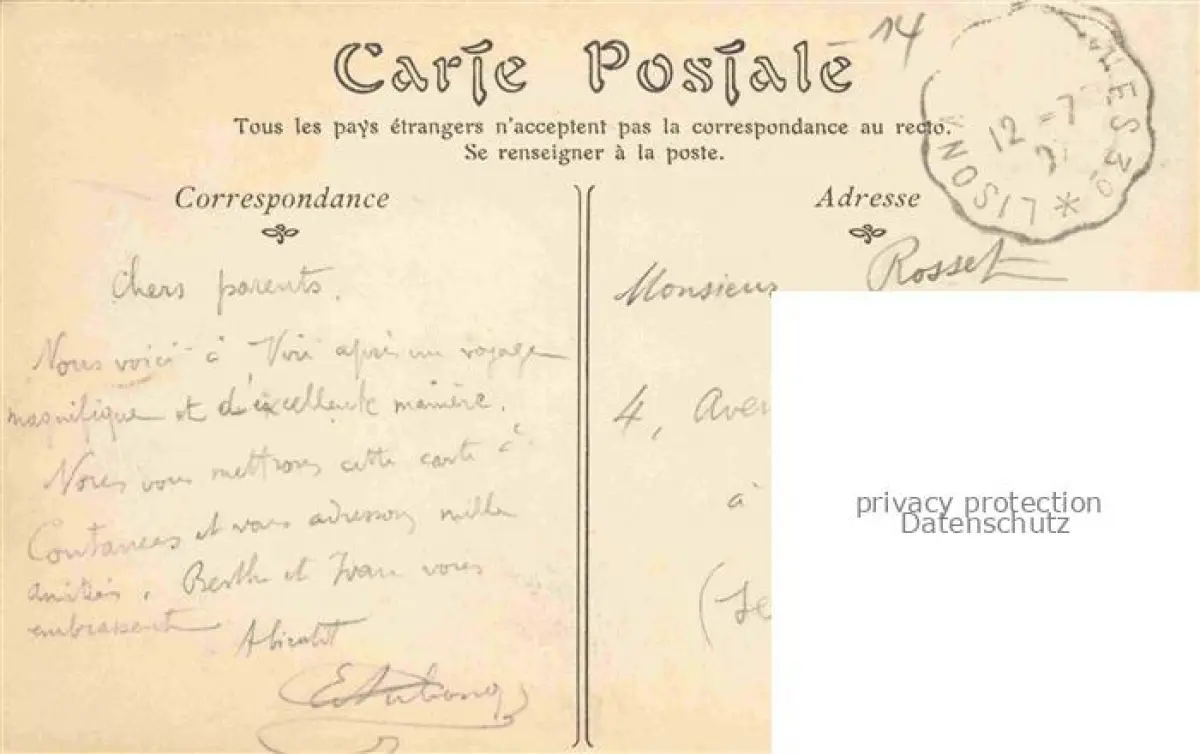 Carte Postale
14
Tous les pays étrangers n'acceptent pas la correspondance au recto.
Se renseigner à la poste.
Correspondance
Adresse
12 -7
LISON A
ES 3º
Chers parents.
Nous voici à Vire après un voyage
magnifique et d'excellente manière.
Nous vous mettrons cette carte à
Coutances et vous adressons mille
amitiés. Berthe et Yvan vous
embrassent
A bientôt
Monsieur Rosset
4, Aven
à
(Se
privacy protection
Datenschutz